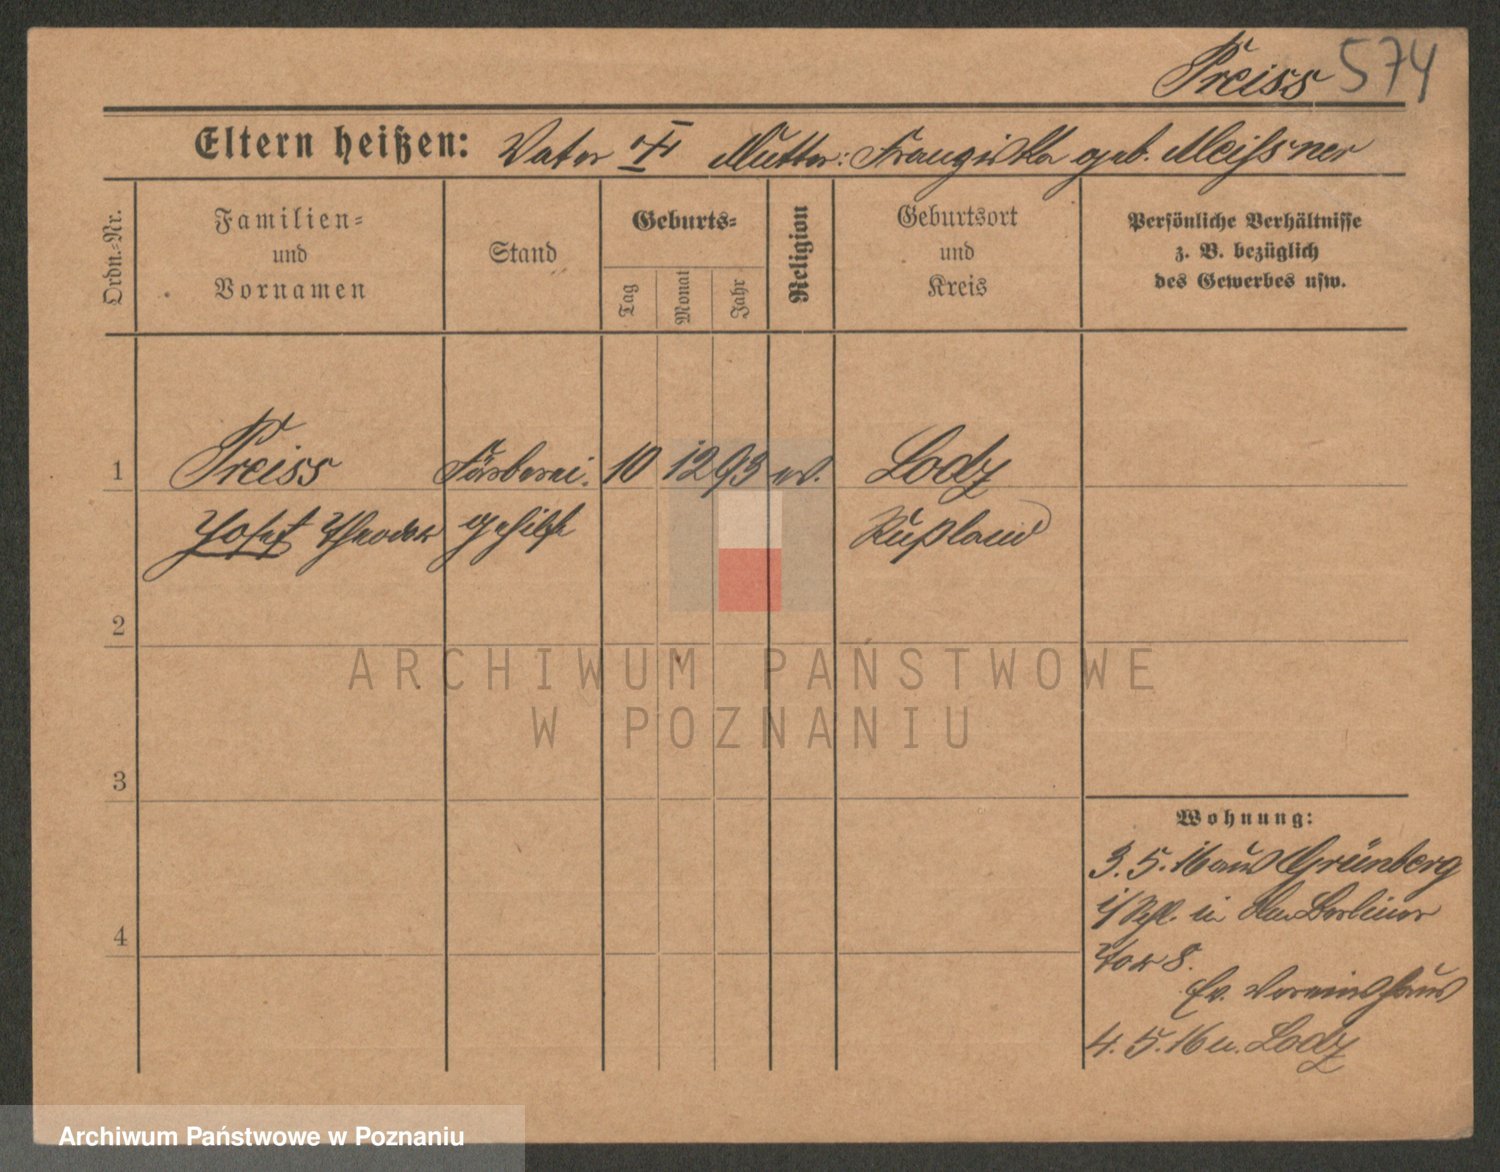 Preiss 574
Eltern heißen: Vater † Mutter: Franziska geb. Meissner
Ordn.-Nr.
Familien- und Vornamen
Stand
Geburts-
Tag
Monat
Jahr
Religion
Geburtsort und Kreis
Persönliche Verhältnisse
z. B. bezüglich
des Gewerbes usw.
1 Preiss Färberei. 10 12 93 ev. Lodz
Josef Theodor gehilfe Rußland
2
3
4
Wohnung:
3.5.16 aus Grünberg
i/Schl. in Am Berliner
Tor 8.
Ev. Vereinshaus
4.5.16 n. Lodz
ARCHIWUM PAŃSTWOWE
W POZNANIU
Archiwum Państwowe w Poznaniu